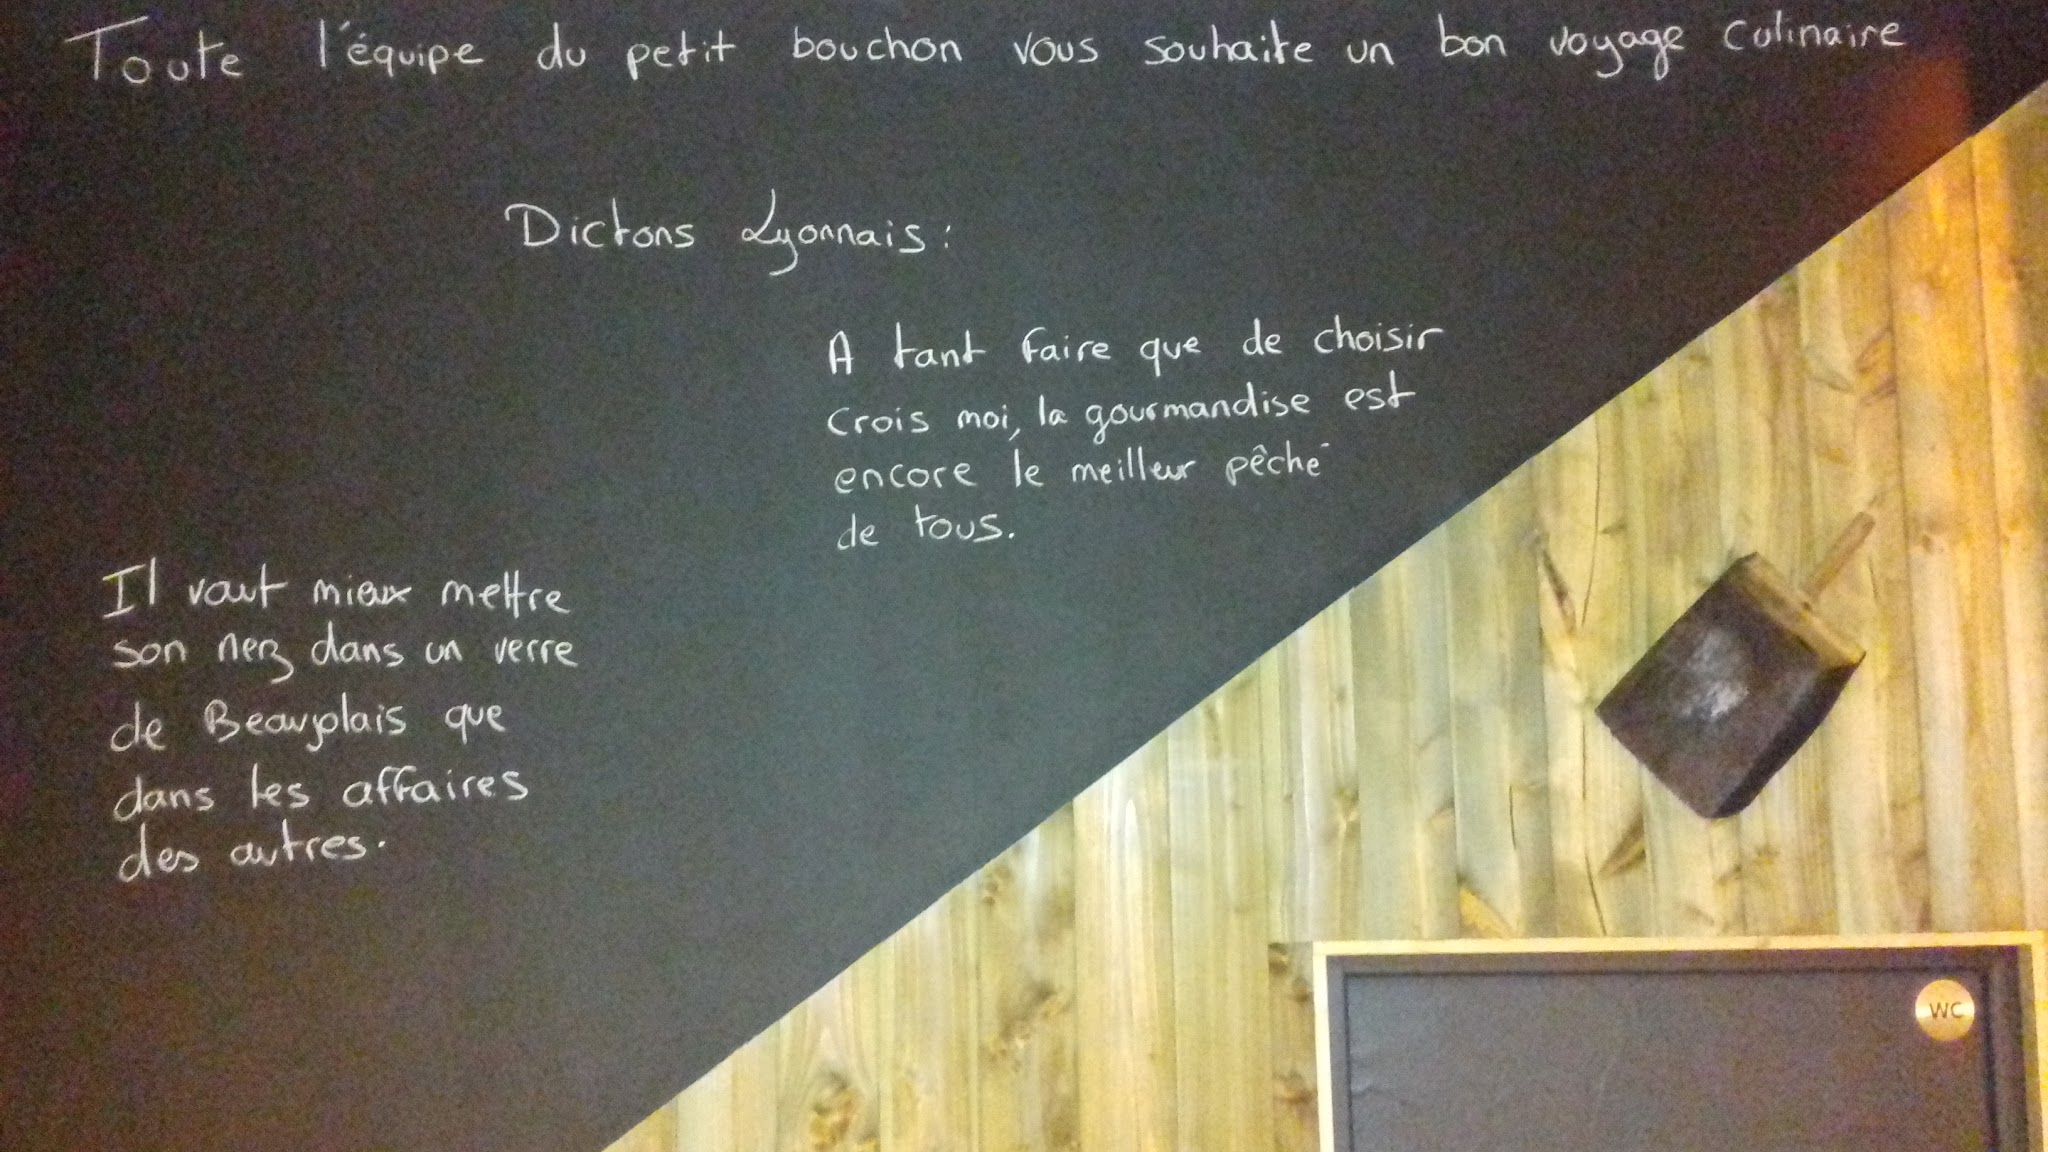 Toute l'équipe du petit bouchon vous souhaite un bon voyage culinaire
Dictons Lyonnais :
A tant faire que de choisir
crois moi, la gourmandise est
encore le meilleur pêché
de tous.
Il vaut mieux mettre
son nez dans un verre
de Beaujolais que
dans les affaires
des autres.
WC